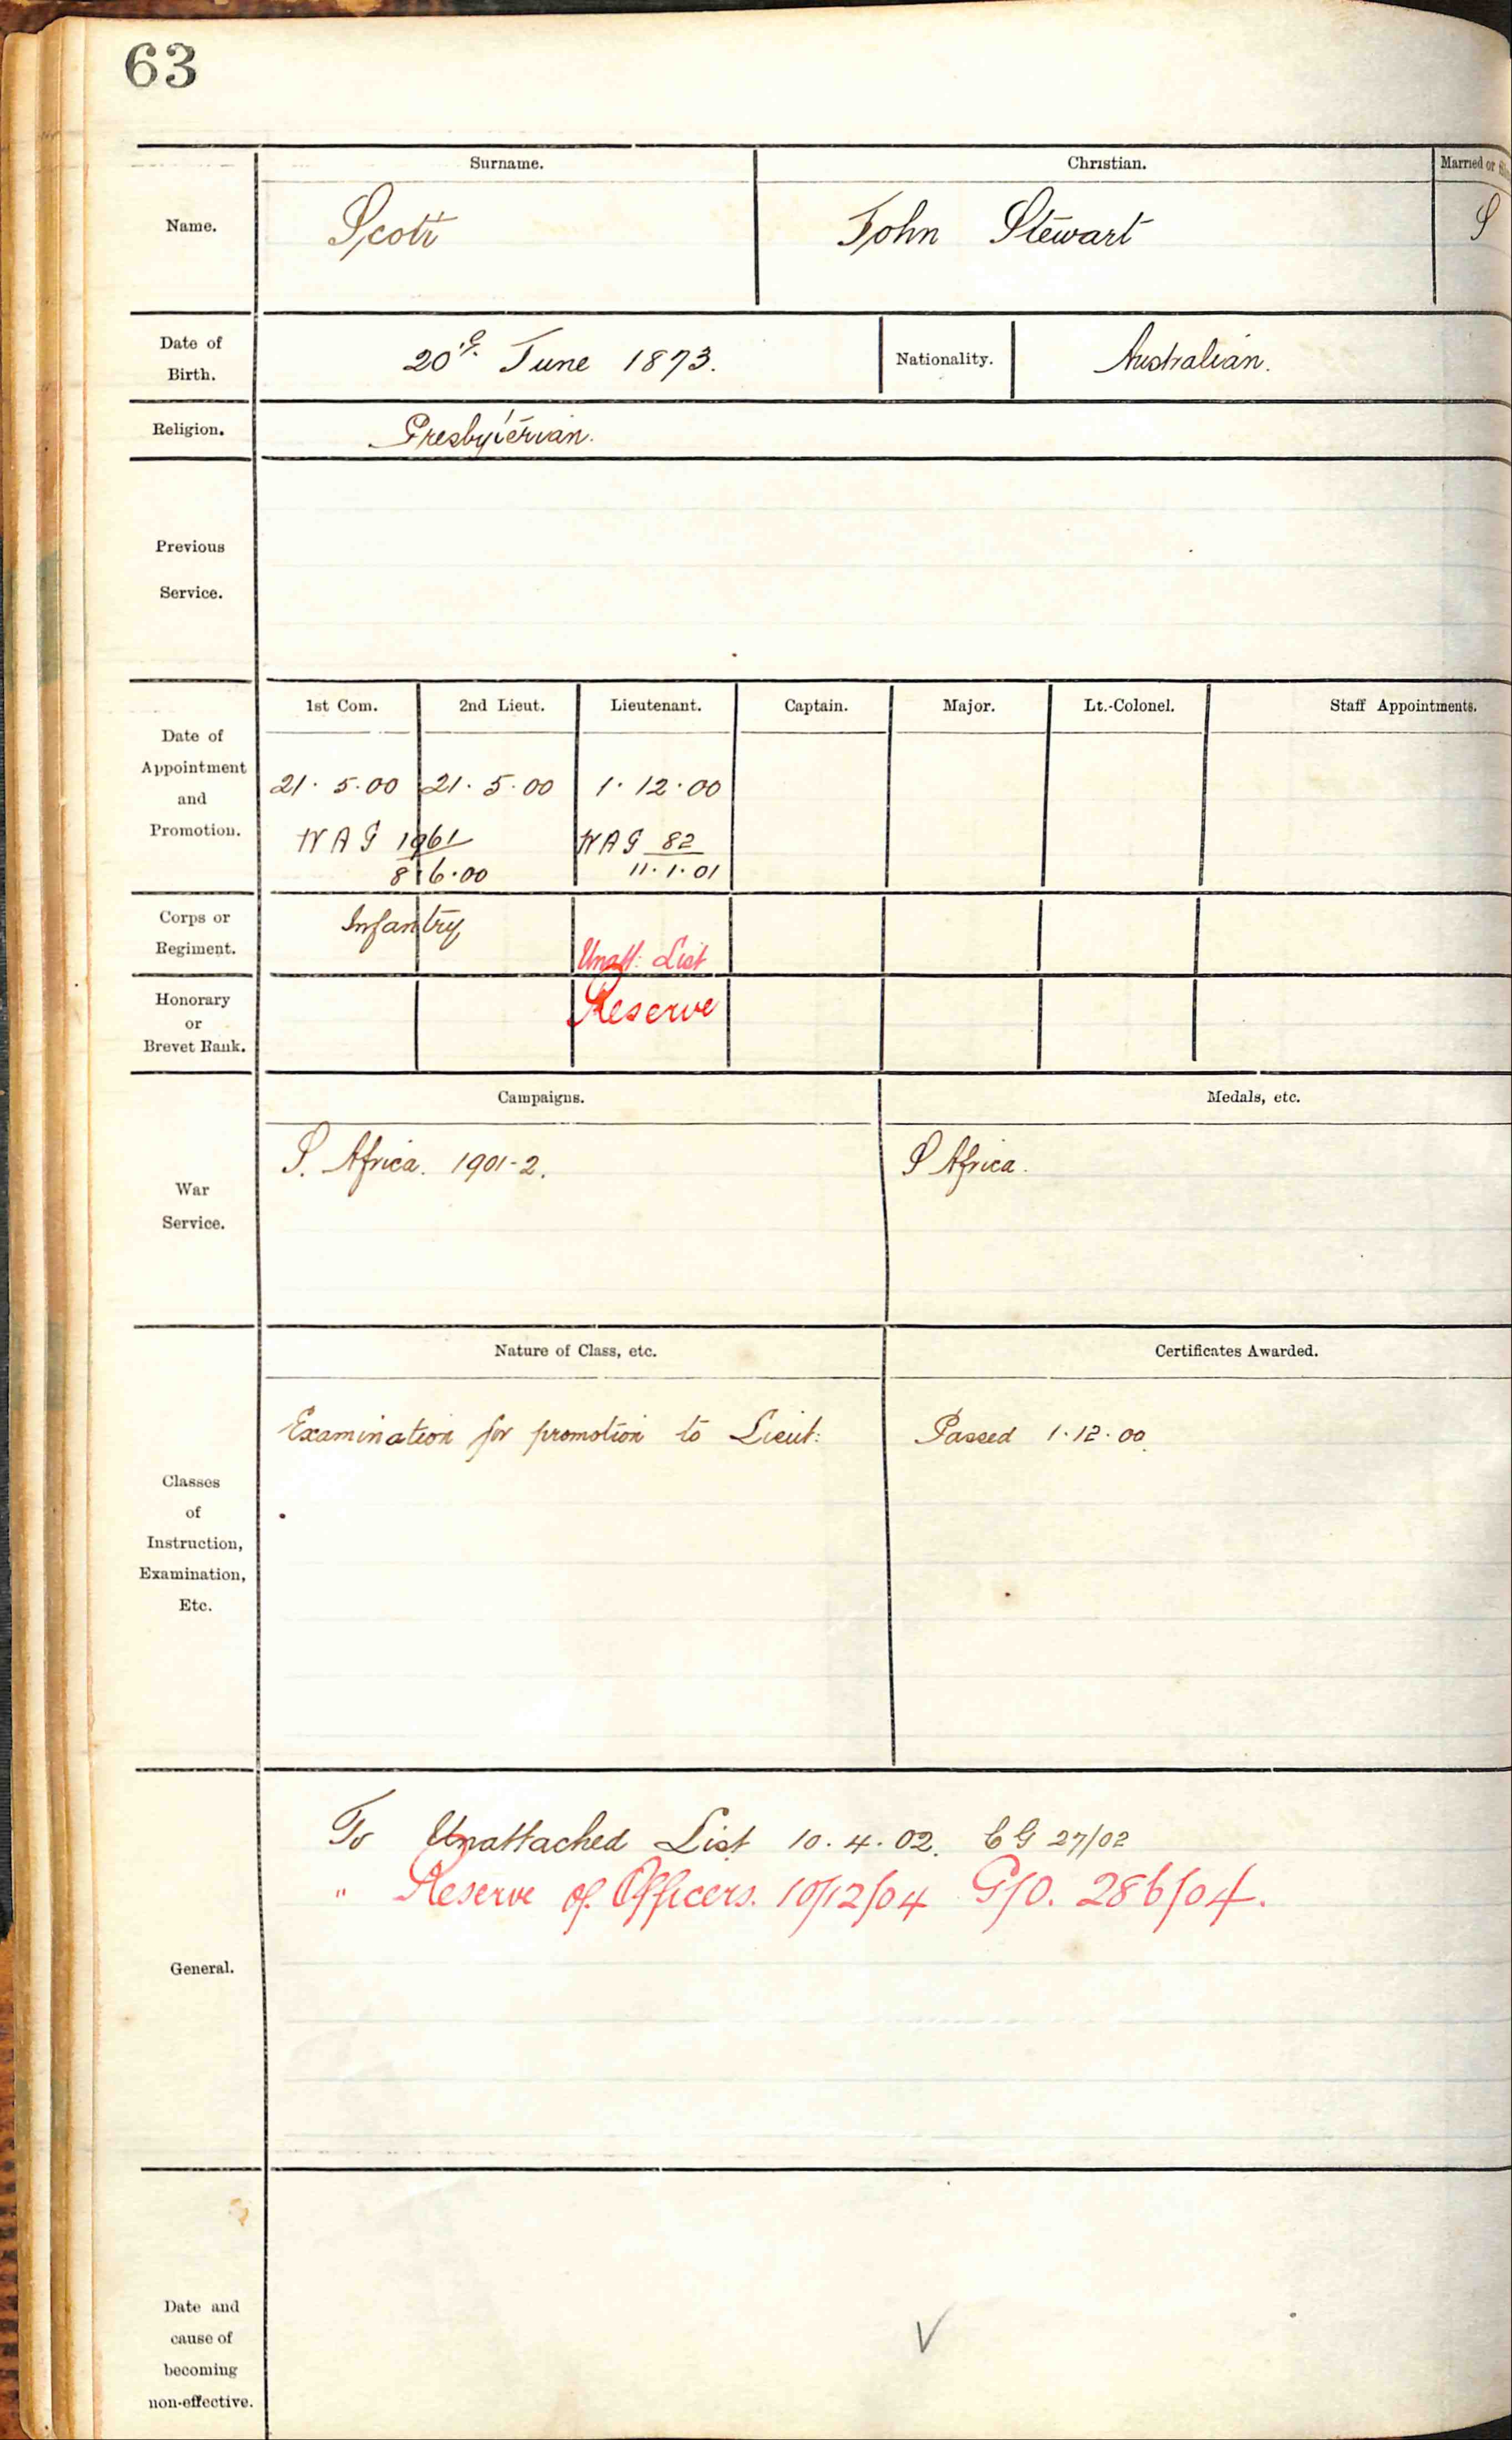 63
Surname. Christian. Married or
Name. Scott John Stewart S
Date of Birth. 20th June 1873. Nationality. Australian.
Religion. Presbyterian.
Previous
Service.
1st Com. 2nd Lieut. Lieutenant. Captain. Major. Lt.-Colonel. Staff Appointments.
Date of
Appointment
and
Promotion.
21. 5.00 21. 5.00 1. 12.00
WAG 1961 WAG 82
8 6.00 11.1.01
Corps or
Regiment.
Infantry
Unatt: List
Honorary
or
Brevet Rank.
Reserve
Campaigns. Medals, etc.
S. Africa. 1901-2. S Africa.
War
Service.
Nature of Class, etc. Certificates Awarded.
Examination for promotion to Lieut: Passed 1.12.00.
Classes
of
Instruction,
Examination,
Etc.
To Unattached List 10.4.02. CG 27/02
" Reserve of Officers. 10/12/04 G/O. 286/04.
General.
Date and
cause of
becoming
non-effective.